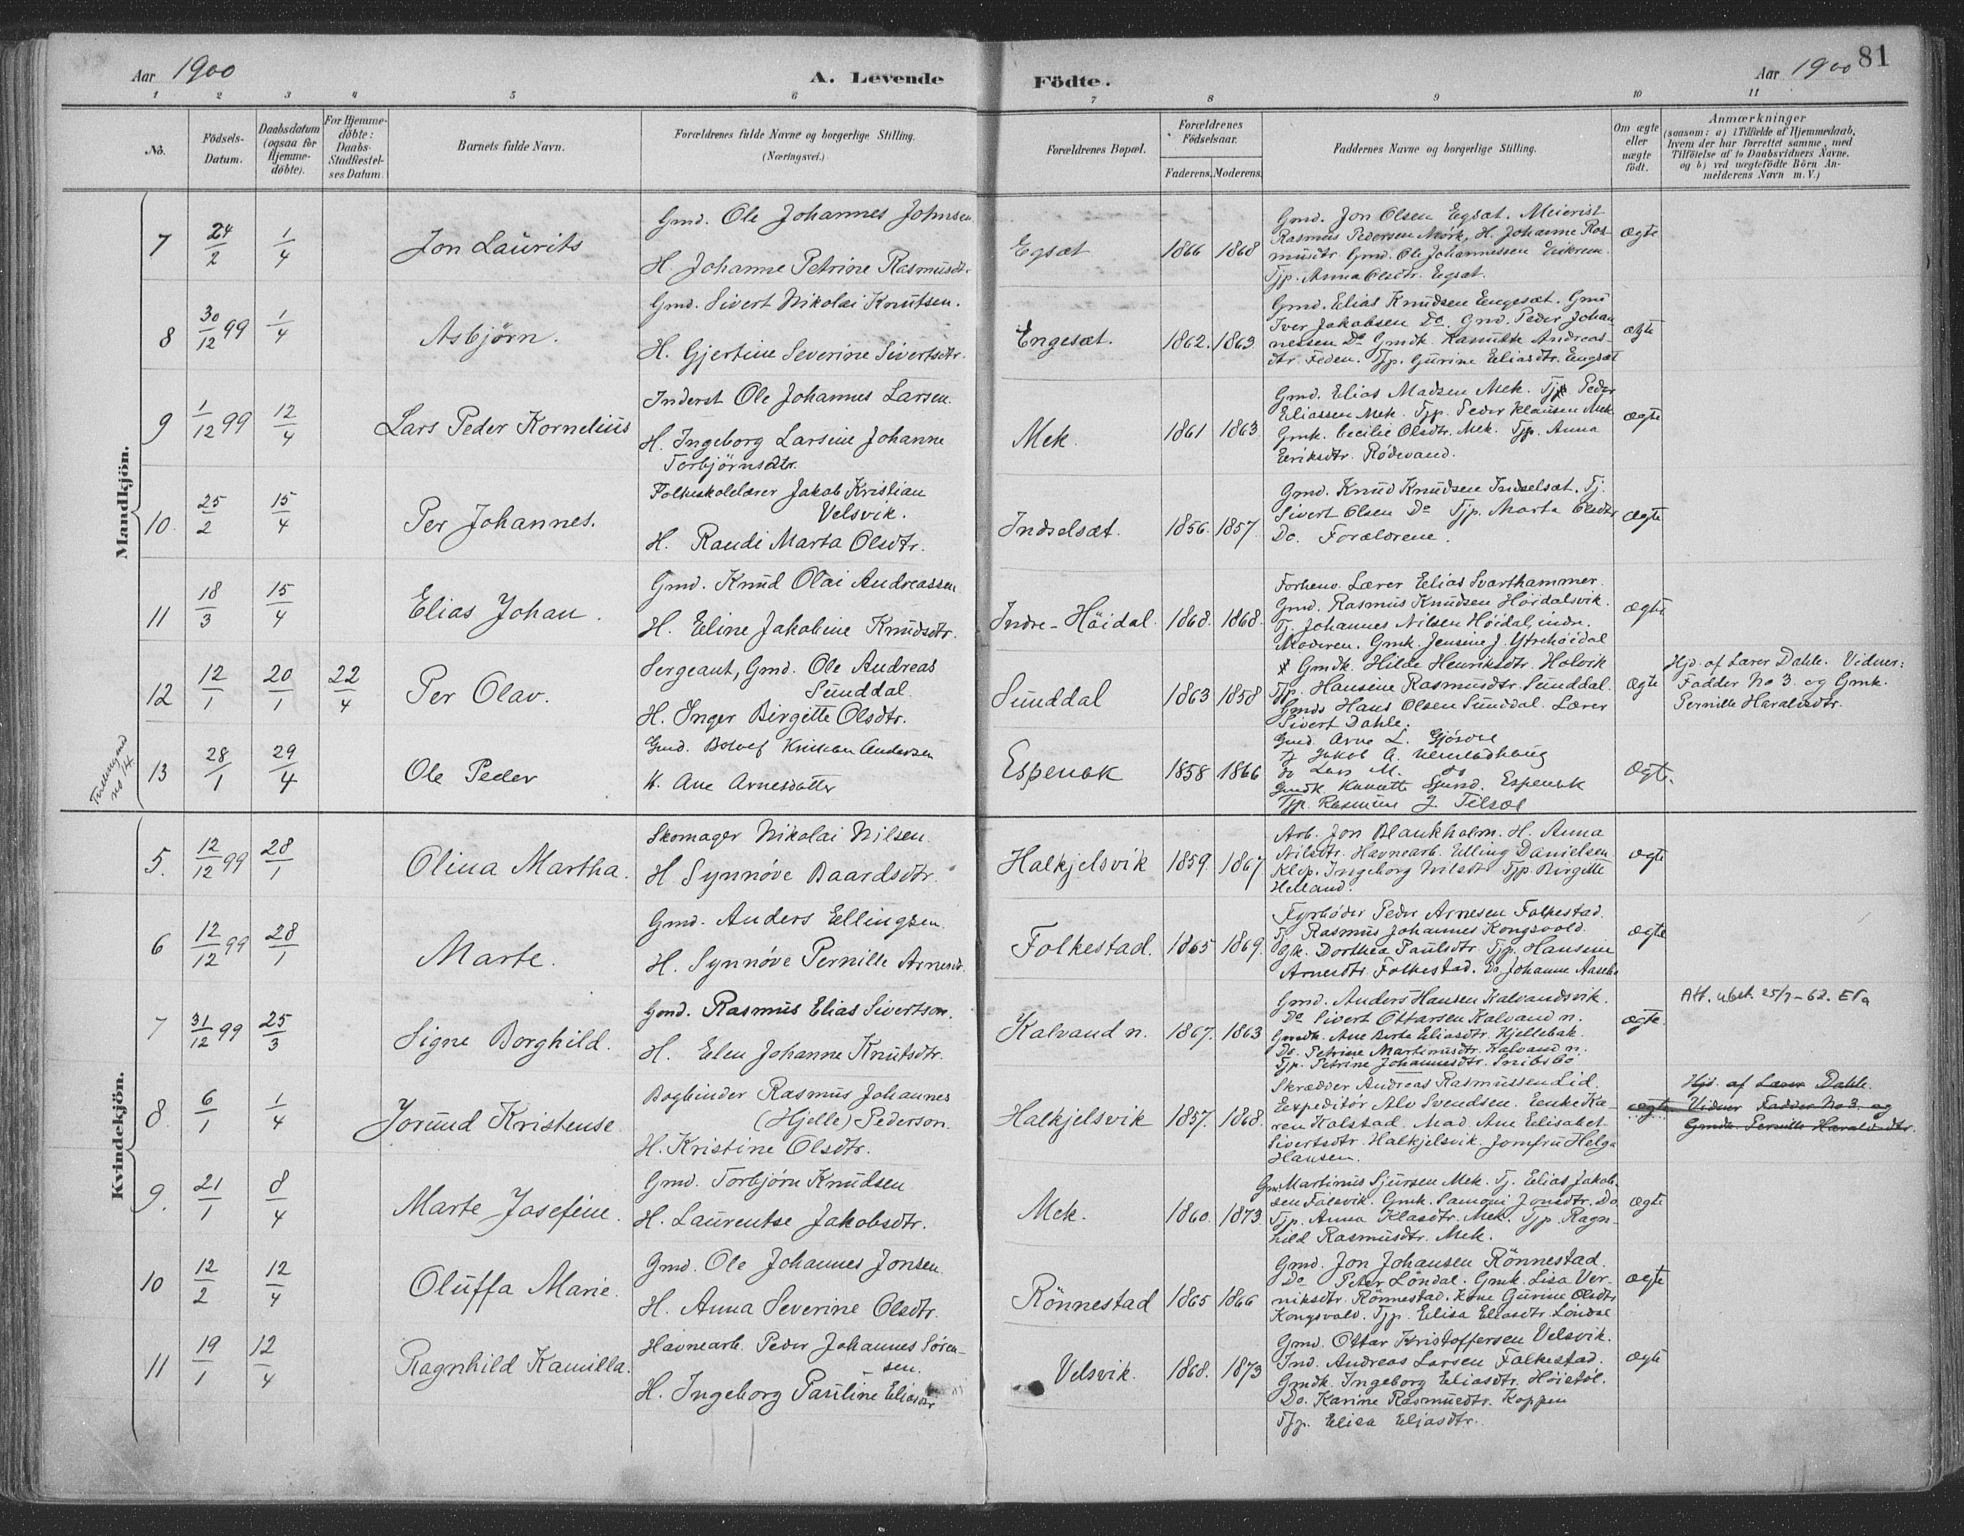 Aar 1900
A. Levende
Födte.
Aar 1900
81
1 2 3 4 5 6 7 8 9 10 11
No.
Födsels-
Datum.
Daabsdatum
(ogsaa for
Hjemme-
döbte).
For Hjemme-
döbte:
Daabs-
Stadfæstel-
ses Datum.
Barnets fulde Navn.
Forældrenes fulde Navne og borgerlige Stilling.
(Næringsvei.)
Forældrenes Bopæl.
Forældrenes
Födselsaar.
Faderens. Moderens.
Faddernes Navne og borgerlige Stilling.
Om ægte
eller
uægte
födt.
Anmærkninger
(saasom: a) i Tilfælde af Hjemmedaab,
hvem der har forrettet samme, med
Tilföielse af to Daabsvidners Navne,
og b) ved uægtefödte Börn An-
melderens Navn m. V.)
Mandkjön.
7 24/2 1/4 Jon Laurits
Gmd. Ole Johannes Johnsen
H Johanne Petrine Rasmusdtr.
Egsæt 1866 1868
Gmd. Jon Olsen Egsæt. Meierist
Rasmus Pedersen Mørk, H. Johanne Ras-
musdtr. Gmd. Ole Johannessen Eikrem
Tjp. Anna Olsdtr. Egsæt.
ægte
8 30/12 99 1/4 Asbjørn.
Gmd. Sivert Nikolai Knutsen.
H. Gjertine Severine Sivertsdtr.
Engesæt. 1862. 1863
Gmd. Elias Knudsen Engesæt. Gmd
Iver Jakobsen Do. Gmd. Peder Johan-
nessen Do Gmdk. Andreas-
dtr. Feden. Tjp. Gurine Eliasdtr. Engsæt
ægte
9 1/12 99 12/4 Lars Peder Kornelius
Inderst Ole Johannes Larsen.
H. Ingeborg Larsine Johanne
Torbjørnsdtr.
Mek. 1861 1863
Gmd. Elias Madsen Mek. Tjp Peder
Eliassen Mek. Tjp. Peder Klausen Mek
Gmk. Cecilie Olsdtr. Mek. Tjp. Anna
Eeriksdtr. Rødevand.
ægte
10. 25/2 15/4 Per Johannes.
Folkeskolelærer Jakob Kristian
Velsvik.
H. Randi Marta Olsdtr.
Indselsæt. 1856. 1857.
Gmd. Knud Knudsen Indselsæt. Tj.
Sivert Olsen Do Tjp. Marta Olsdtr
Do. Forældrene.
ægte
11 18/3 15/4 Elias Johan.
Gmd. Knud Olai Andreassen
H. Eline Jakobine Knudsdtr.
Indre-Höidal. 1868. 1868.
Forhenv. Lærer Elias Svarthammer.
Gmd. Rasmus Knudsen Höidalsvik.
Tj. Johannes Nilsen Höidal, indre.
Moderen. Gmk. Jensine J. Ytrehöidal
ægte
12 12/1 20/1 22/4 Per Olav.
Sergeant, Gmd. Ole Andreas
Sunddal.
H. Inger Birgitte Olsdtr.
Sunddal 1863 1858
Gmdk. Hilde Henriksdtr. Holvik
Tjp. Hansine Rasmusdtr. Sunddal.
Gmds Hans Olsen Sunddal. Lærer
Sivert Dahle.
ægte
Hjd. af Lærer Dahle. Vidner:
Fadder No 3. og Gmk.
Pernille Haralsdtr.
Tvillingmd
no 14.
13 28/1 29/4 Ole Peder
Gmd. Andersen
H. Ane Arnesdatter
Espenæk 1858 1866
Gmd. Arne L. Gjörvel
Tj Jakob A.
do Lars M. do
Gmdk Sjurd. Espenæk
Tjp. Rasmine J.
ægte.
Kvindekjön.
5. 12/12 99 28/1 Olina Martha.
Skomager Nikolai Nilsen.
H Synnøve Baardsdtr.
Halkjelsvik 1859. 1867
Arb. Jon Blankholm. H. Anna
Nilsdtr. Havnearb. Elling Danielsen
Klep. Ingeborg Nilsdtr Tjp. Birgitte
Helland.
ægte
6 12/12 99 28/1 Marte.
Gmd. Anders Ellingsen
H. Synnøve Pernille Arnesdr.
Folkestad. 1865 1869.
Fyrbøder Peder Arnesen Folkestad.
Tj Rasmus Johannes Kongsvold
Gk. Dorthea Paulsdtr. Tjp. Hansine
Arnesdtr. Folkestad. Do Johanne
ægte
7 31/12 99 25/3 Signe Borghild.
Gmd. Rasmus Elias Sivertson.
H. Elen Johanne Knutsdtr.
Kalvand n. 1867. 1863
Gmd. Anders Hansen Kalvandsvik.
Do Sivert Ottarsen Kalvand n.
Gmdk. Ane Berte Eliasdtr. Hjellebak.
Do. Petrine Martinusdtr. Kalvand n.
Tjp. Petrine Johannesdtr. Snibsbö
ægte.
Att. utst. 25/7-62. ETa
8. 6/1 1/4 Jorund Kristense.
Bogbinder Rasmus Johannes
(Hjelle) Pederson.
H. Kristine Olsdtr.
Halkjelsvik 1857. 1868.
Skrædder Andreas Rasmussen Lid.
Eexpeditör Alv Svendsen. Enke Ka-
ren Kalstad. Mad. Ane Elisabet
Sivertsdtr. Halkjelsvik. Jomfru Helga
Hansen.
ægte
Hjd. af Lærer Dahle.
Vidner Fadder No 3. og
Gmdk. Pernille Haralsdtr.
9. 21/1 8/4 Marte Josefine.
Gmd. Torbjørn Knudsen
H. Laurentse Jakobsdtr.
Mek. 1860. 1873
Gmd Martinus Sjursen Mek. Tj. Elias Jakob-
sen Folsvik. Gmk. Jonsdtr. Do
Tjp. Anna Klasdtr. Mek. Tjp. Ragn-
hild Rasmusdtr. Mek.
ægte
10 12/2 12/4 Oluffa Marie.
Gmd. Ole Johannes Jonsen
H. Anna Severine Olsdtr.
Rönnestad 1865 1866
Gmd. Jon Johansen Rönnestad.
Do Peter Löndal. Gmk. Lisa Ver-
niksdtr. Rönnestad. Kone Gurine Olsdtr
Kongsvold. Tjp. Elisa Eliasdtr. Löndal
ægte
11 19/1 12/4 Ragnhild Kamilla.
Havnearb. Peder Johannes Sören-
sen.
H. Ingeborg Pauline Eliasdtr
Velsvik. 1868. 1873
Gmd. Ottar Kristoffersen Velsvik.
Ind. Andreas Larsen Folkestad.
Gmdk. Ingeborg Eliasdtr. Höietöl.
Do. Karine Rasmusdtr. Koppen
Tjp. Elisa Eliasdtr.
ægte